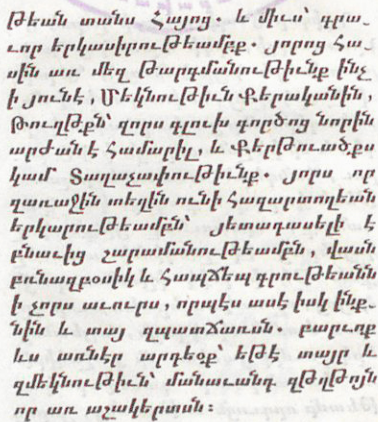 թեան տանս Հայոց. և միւս՝ գրա֊
ւոր երկասիրութեամբք. յորոց հա֊
սին առ մեզ Թարգմանութիւնք ինչ
ի յունէ, Մեկնութիւն Քերականին,
Թուղթքն՝ զորս գլուխ գործոց նորին
արժան է համարիլ, և Քերթուածքս
կամ՝ Տաղաչափութիւնք. յորս որ
զառաջին տեղին ունի Հազարտողեան
երկարութեամբն՝ յետադասելի է
բնաւից շարամանութեամբն, վասն
բռնազբօսիկ և հապճեպ գրութեանն
ի չորս աւուրս, որպէս ասէ իսկ ինք֊
նին և տայ զպատճառսն. բարւոք
ևս առնէր արդեօք՝ եթէ տայր և
զմեկնութիւն՝ մանաւանդ զԹղթոյն
որ առ աշակերտսն: